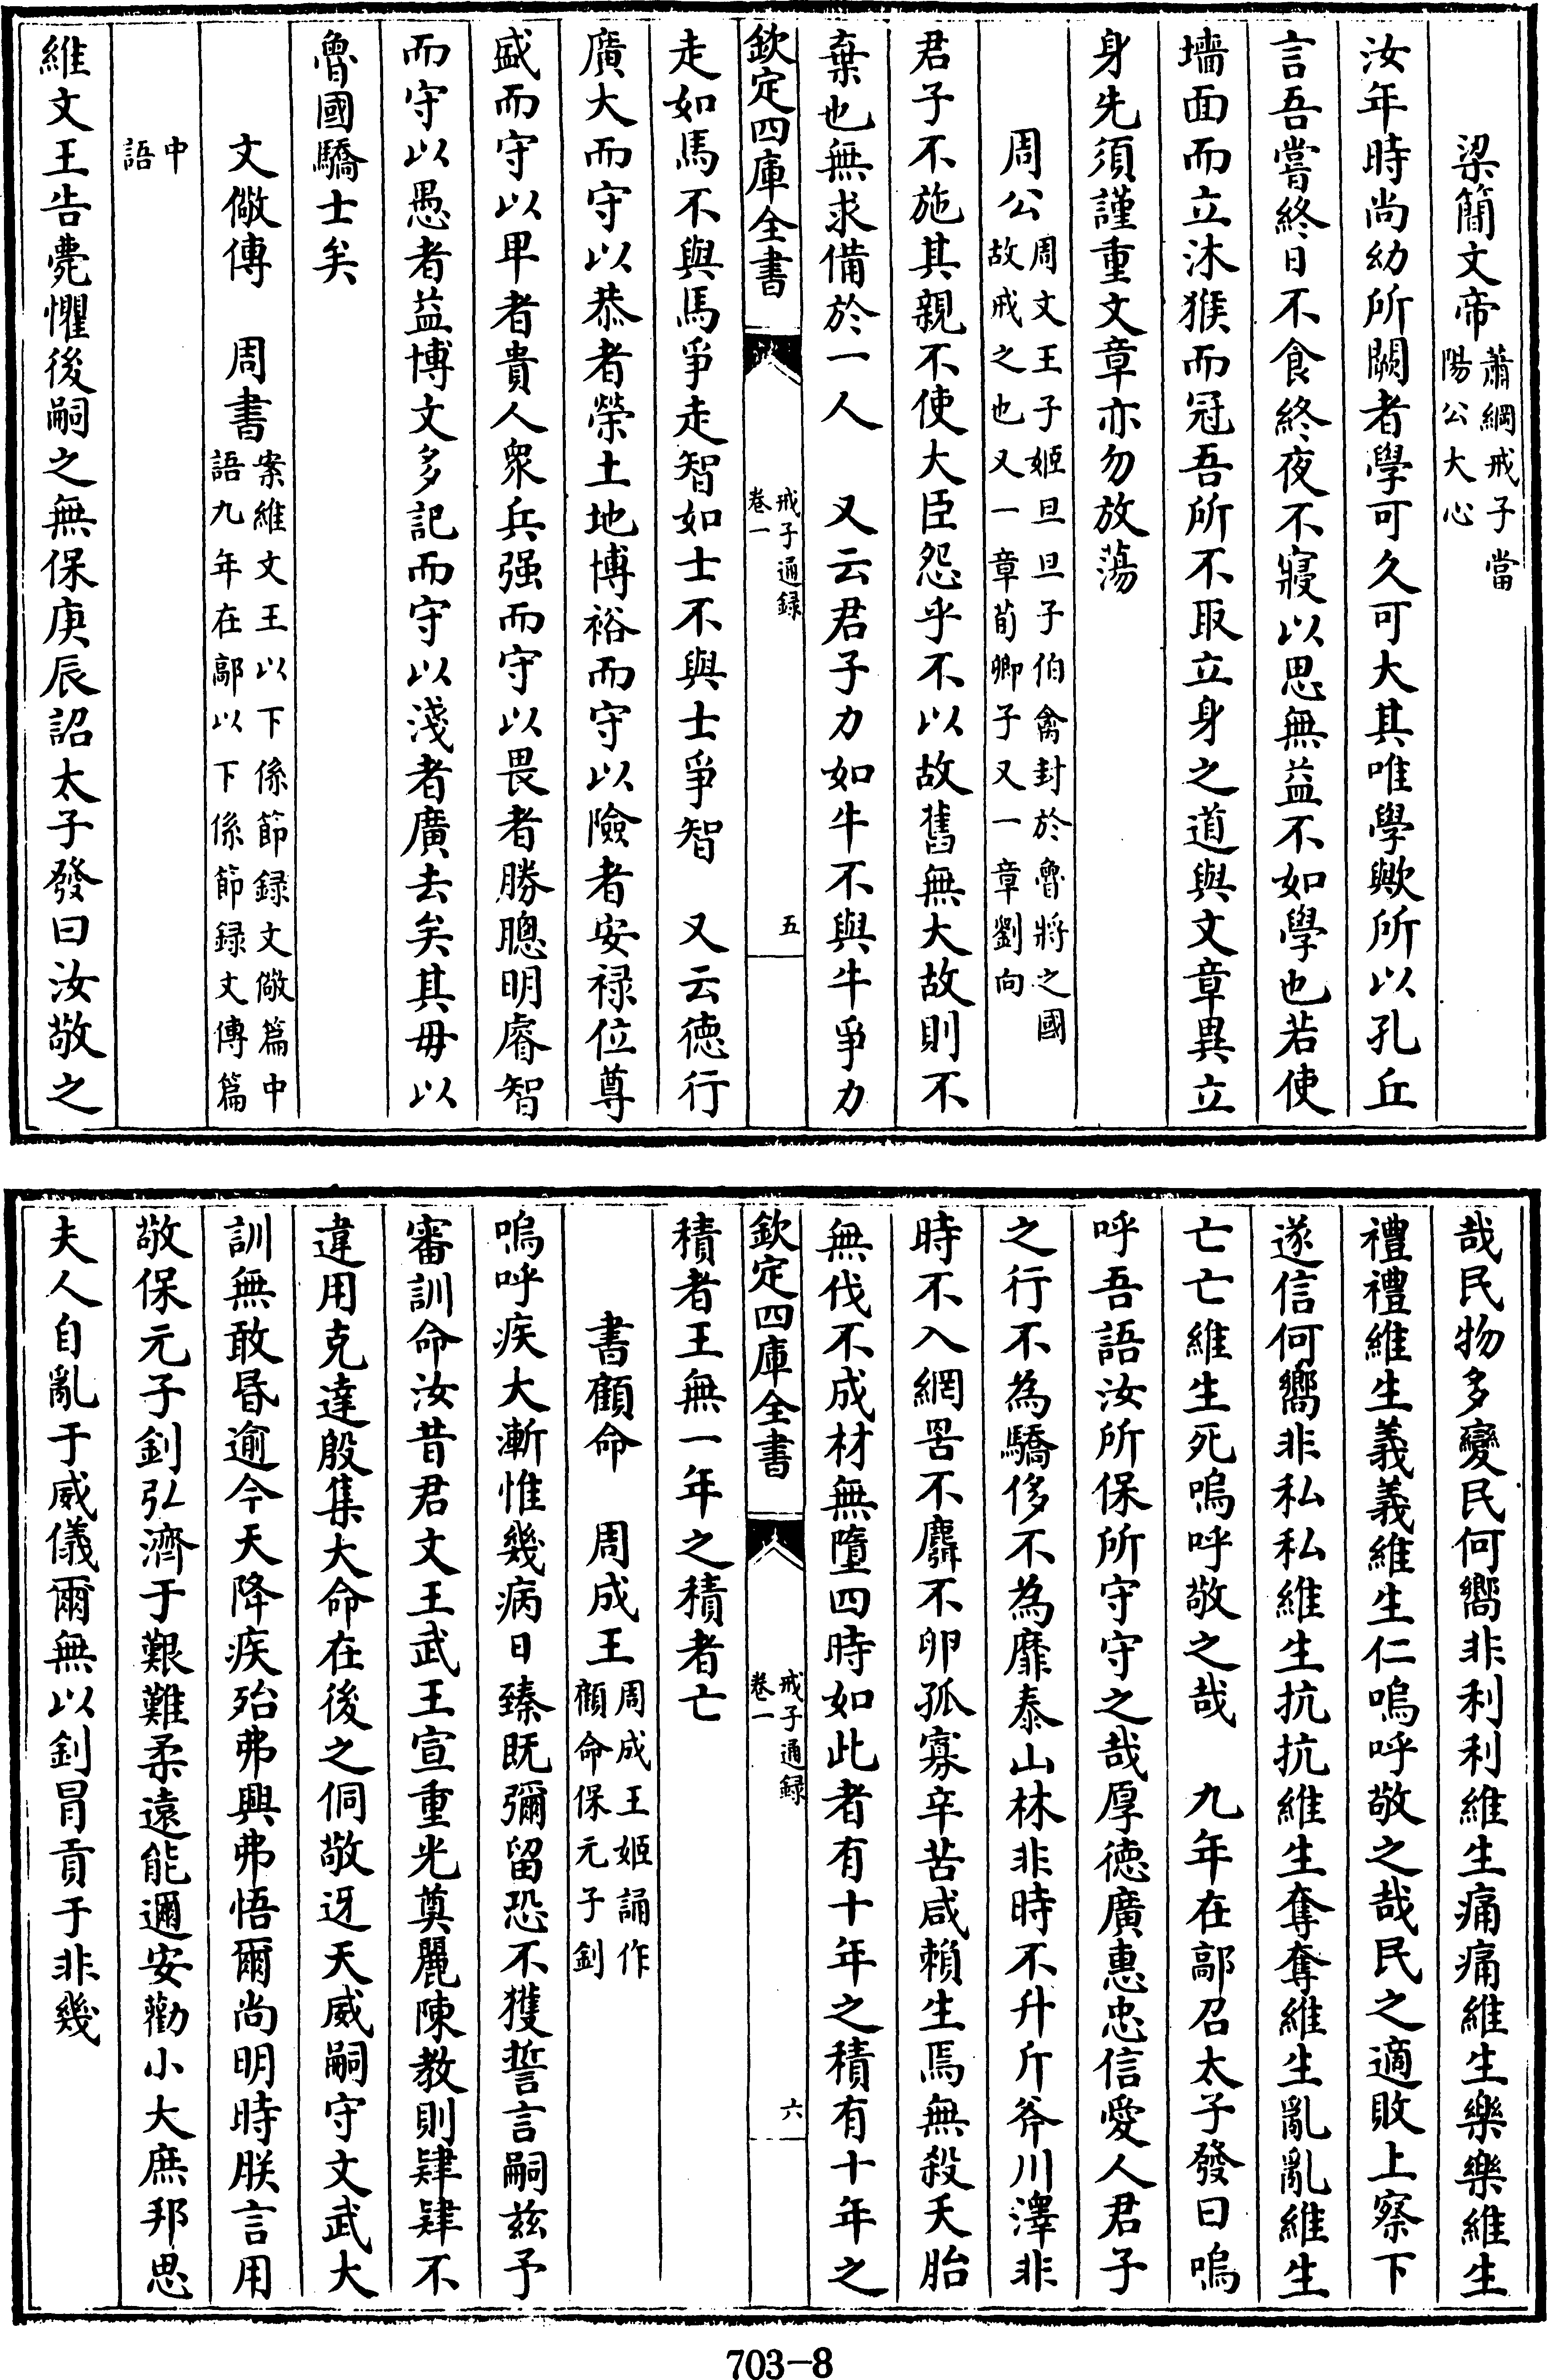 梁簡文帝蕭綱戒子當
陽公大心
汝年時尚幼所闕者學可久可大其唯學歟所以孔丘
言吾嘗終日不食終夜不寢以思無益不如學也若使
墻面而立沐猴而冠吾所不取立身之道與文章異立
身先須謹重文章亦勿放蕩
周公周文王子姬旦旦子伯禽封於魯將之國
故戒之也又一章荀卿子又一章劉向
君子不施其親不使大臣怨乎不以故舊無大故則不
棄也無求備於一人　又云君子力如牛不與牛爭力
欽定四庫全書
戒子通録
卷一
五
走如馬不與馬爭走智如士不與士爭智　又云徳行
廣大而守以恭者榮土地博裕而守以險者安禄位尊
盛而守以卑者貴人衆兵强而守以畏者勝聰明睿智
而守以愚者益博文多記而守以淺者廣去矣其毋以
魯國驕士矣
文儆傳　周書案維文王以下係節録文儆篇中
語九年在鄗以下係節録文傳篇
中
語
維文王告夢懼後嗣之無保庚辰詔太子發曰汝敬之
哉民物多變民何嚮非利利維生痛痛維生樂樂維生
禮禮維生義義維生仁嗚呼敬之哉民之適敗上察下
遂信何嚮非私私維生抗抗維生奪奪維生亂亂維生
亡亡維生死嗚呼敬之哉　九年在鄗召太子發曰嗚
呼吾語汝所保所守守之哉厚徳廣惠忠信愛人君子
之行不為驕侈不為靡泰山林非時不升斤斧川澤非
時不入網罟不麛不卵孤寡辛苦咸頼生焉無殺夭胎
無伐不成材無墮四時如此者有十年之積有十年之
欽定四庫全書
戒子通録
卷一
六
積者王無一年之積者亡
書顧命　周成王周成王姬誦作
顧命保元子釗
嗚呼疾大漸惟幾病日臻既彌留恐不獲誓言嗣兹予
審訓命汝昔君文王武王宣重光奠麗陳教則肄肄不
違用克達殷集大命在後之侗敬迓天威嗣守文武大
訓無敢昬逾今天降疾殆弗興弗悟爾尚明時朕言用
敬保元子釗弘濟于艱難柔遠能邇安勸小大庶邦思
夫人自亂于威儀爾無以釗冒貢于非幾
703-8